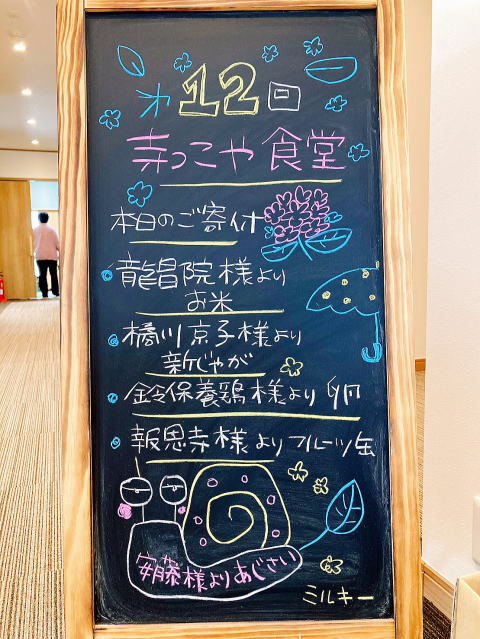 オ12回
寺っこや食堂
本日のご寄付
龍昌院様より
お米
橘川京子様より
新じゃが
鈴保養鶏様より 卵
報恩寺様よりフルーツ缶
安藤様よりあじさい
ミルキー